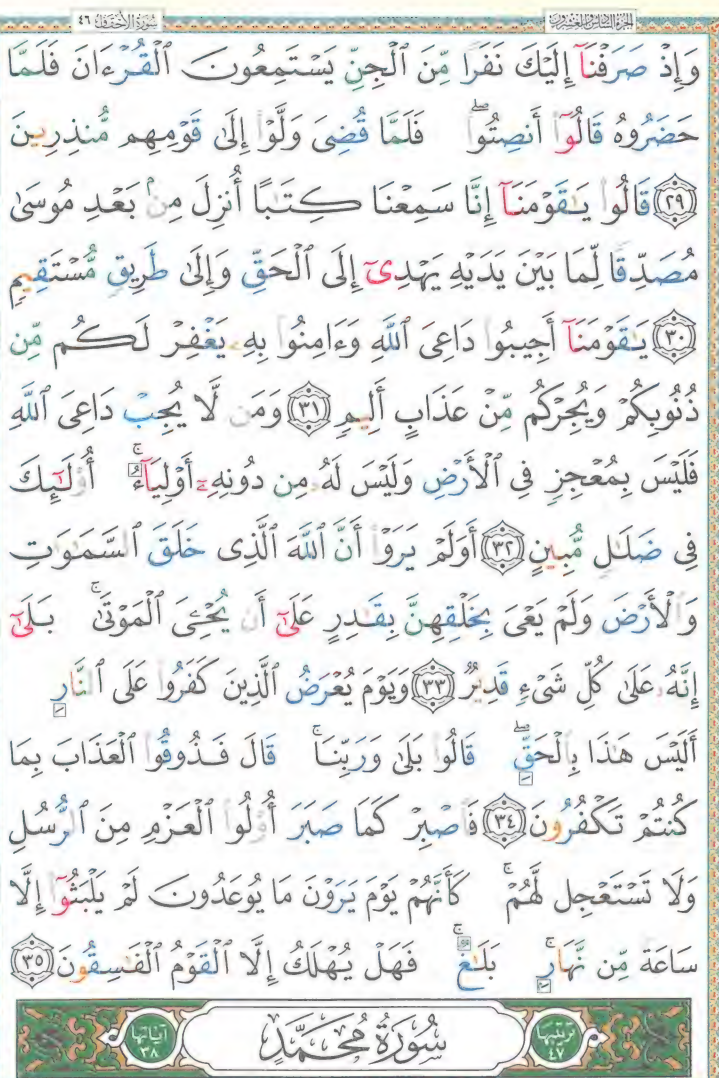 سُورَةُ الأَحْقَافِ ٤٦ الجُزْءُ السَّادِسُ وَالعِشْرُونَ
وَإِذْ صَرَفْنَآ إِلَيْكَ نَفَرًا مِّنَ ٱلْجِنِّ يَسْتَمِعُونَ ٱلْقُرْءَانَ فَلَمَّا
حَضَرُوهُ قَالُوٓا۟ أَنصِتُوا۟ۖ فَلَمَّا قُضِىَ وَلَّوْا۟ إِلَىٰ قَوْمِهِم مُّنذِرِينَ
﴿٢٩﴾ قَالُوا۟ يَـٰقَوْمَنَآ إِنَّا سَمِعْنَا كِتَـٰبًا أُنزِلَ مِنۢ بَعْدِ مُوسَىٰ
مُصَدِّقًا لِّمَا بَيْنَ يَدَيْهِ يَهْدِىٓ إِلَى ٱلْحَقِّ وَإِلَىٰ طَرِيقٍ مُّسْتَقِيمٍ
﴿٣٠﴾ يَـٰقَوْمَنَآ أَجِيبُوا۟ دَاعِىَ ٱللَّهِ وَءَامِنُوا۟ بِهِۦ يَغْفِرْ لَكُم مِّن
ذُنُوبِكُمْ وَيُجِرْكُم مِّنْ عَذَابٍ أَلِيمٍ ﴿٣١﴾ وَمَن لَّا يُجِبْ دَاعِىَ ٱللَّهِ
فَلَيْسَ بِمُعْجِزٍ فِى ٱلْأَرْضِ وَلَيْسَ لَهُۥ مِن دُونِهِۦٓ أَوْلِيَآءُۚ أُو۟لَـٰٓئِكَ
فِى ضَلَـٰلٍ مُّبِينٍ ﴿٣٢﴾ أَوَلَمْ يَرَوْا۟ أَنَّ ٱللَّهَ ٱلَّذِى خَلَقَ ٱلسَّمَـٰوَٰتِ
وَٱلْأَرْضَ وَلَمْ يَعْىَ بِخَلْقِهِنَّ بِقَـٰدِرٍ عَلَىٰٓ أَن يُحْـِۧىَ ٱلْمَوْتَىٰۚ بَلَىٰٓ
إِنَّهُۥ عَلَىٰ كُلِّ شَىْءٍ قَدِيرٌ ﴿٣٣﴾ وَيَوْمَ يُعْرَضُ ٱلَّذِينَ كَفَرُوا۟ عَلَى ٱلنَّارِ
أَلَيْسَ هَـٰذَا بِٱلْحَقِّۖ قَالُوا۟ بَلَىٰ وَرَبِّنَاۚ قَالَ فَذُوقُوا۟ ٱلْعَذَابَ بِمَا
كُنتُمْ تَكْفُرُونَ ﴿٣٤﴾ فَٱصْبِرْ كَمَا صَبَرَ أُو۟لُوا۟ ٱلْعَزْمِ مِنَ ٱلرُّسُلِ
وَلَا تَسْتَعْجِل لَّهُمْۚ كَأَنَّهُمْ يَوْمَ يَرَوْنَ مَا يُوعَدُونَ لَمْ يَلْبَثُوٓا۟ إِلَّا
سَاعَةً مِّن نَّهَارٍۚ بَلَـٰغٌۚ فَهَلْ يُهْلَكُ إِلَّا ٱلْقَوْمُ ٱلْفَـٰسِقُونَ ﴿٣٥﴾
تَرْتِيبُهَا ٤٧ سُورَةُ مُحَمَّدٍ آيَاتُهَا ٣٨